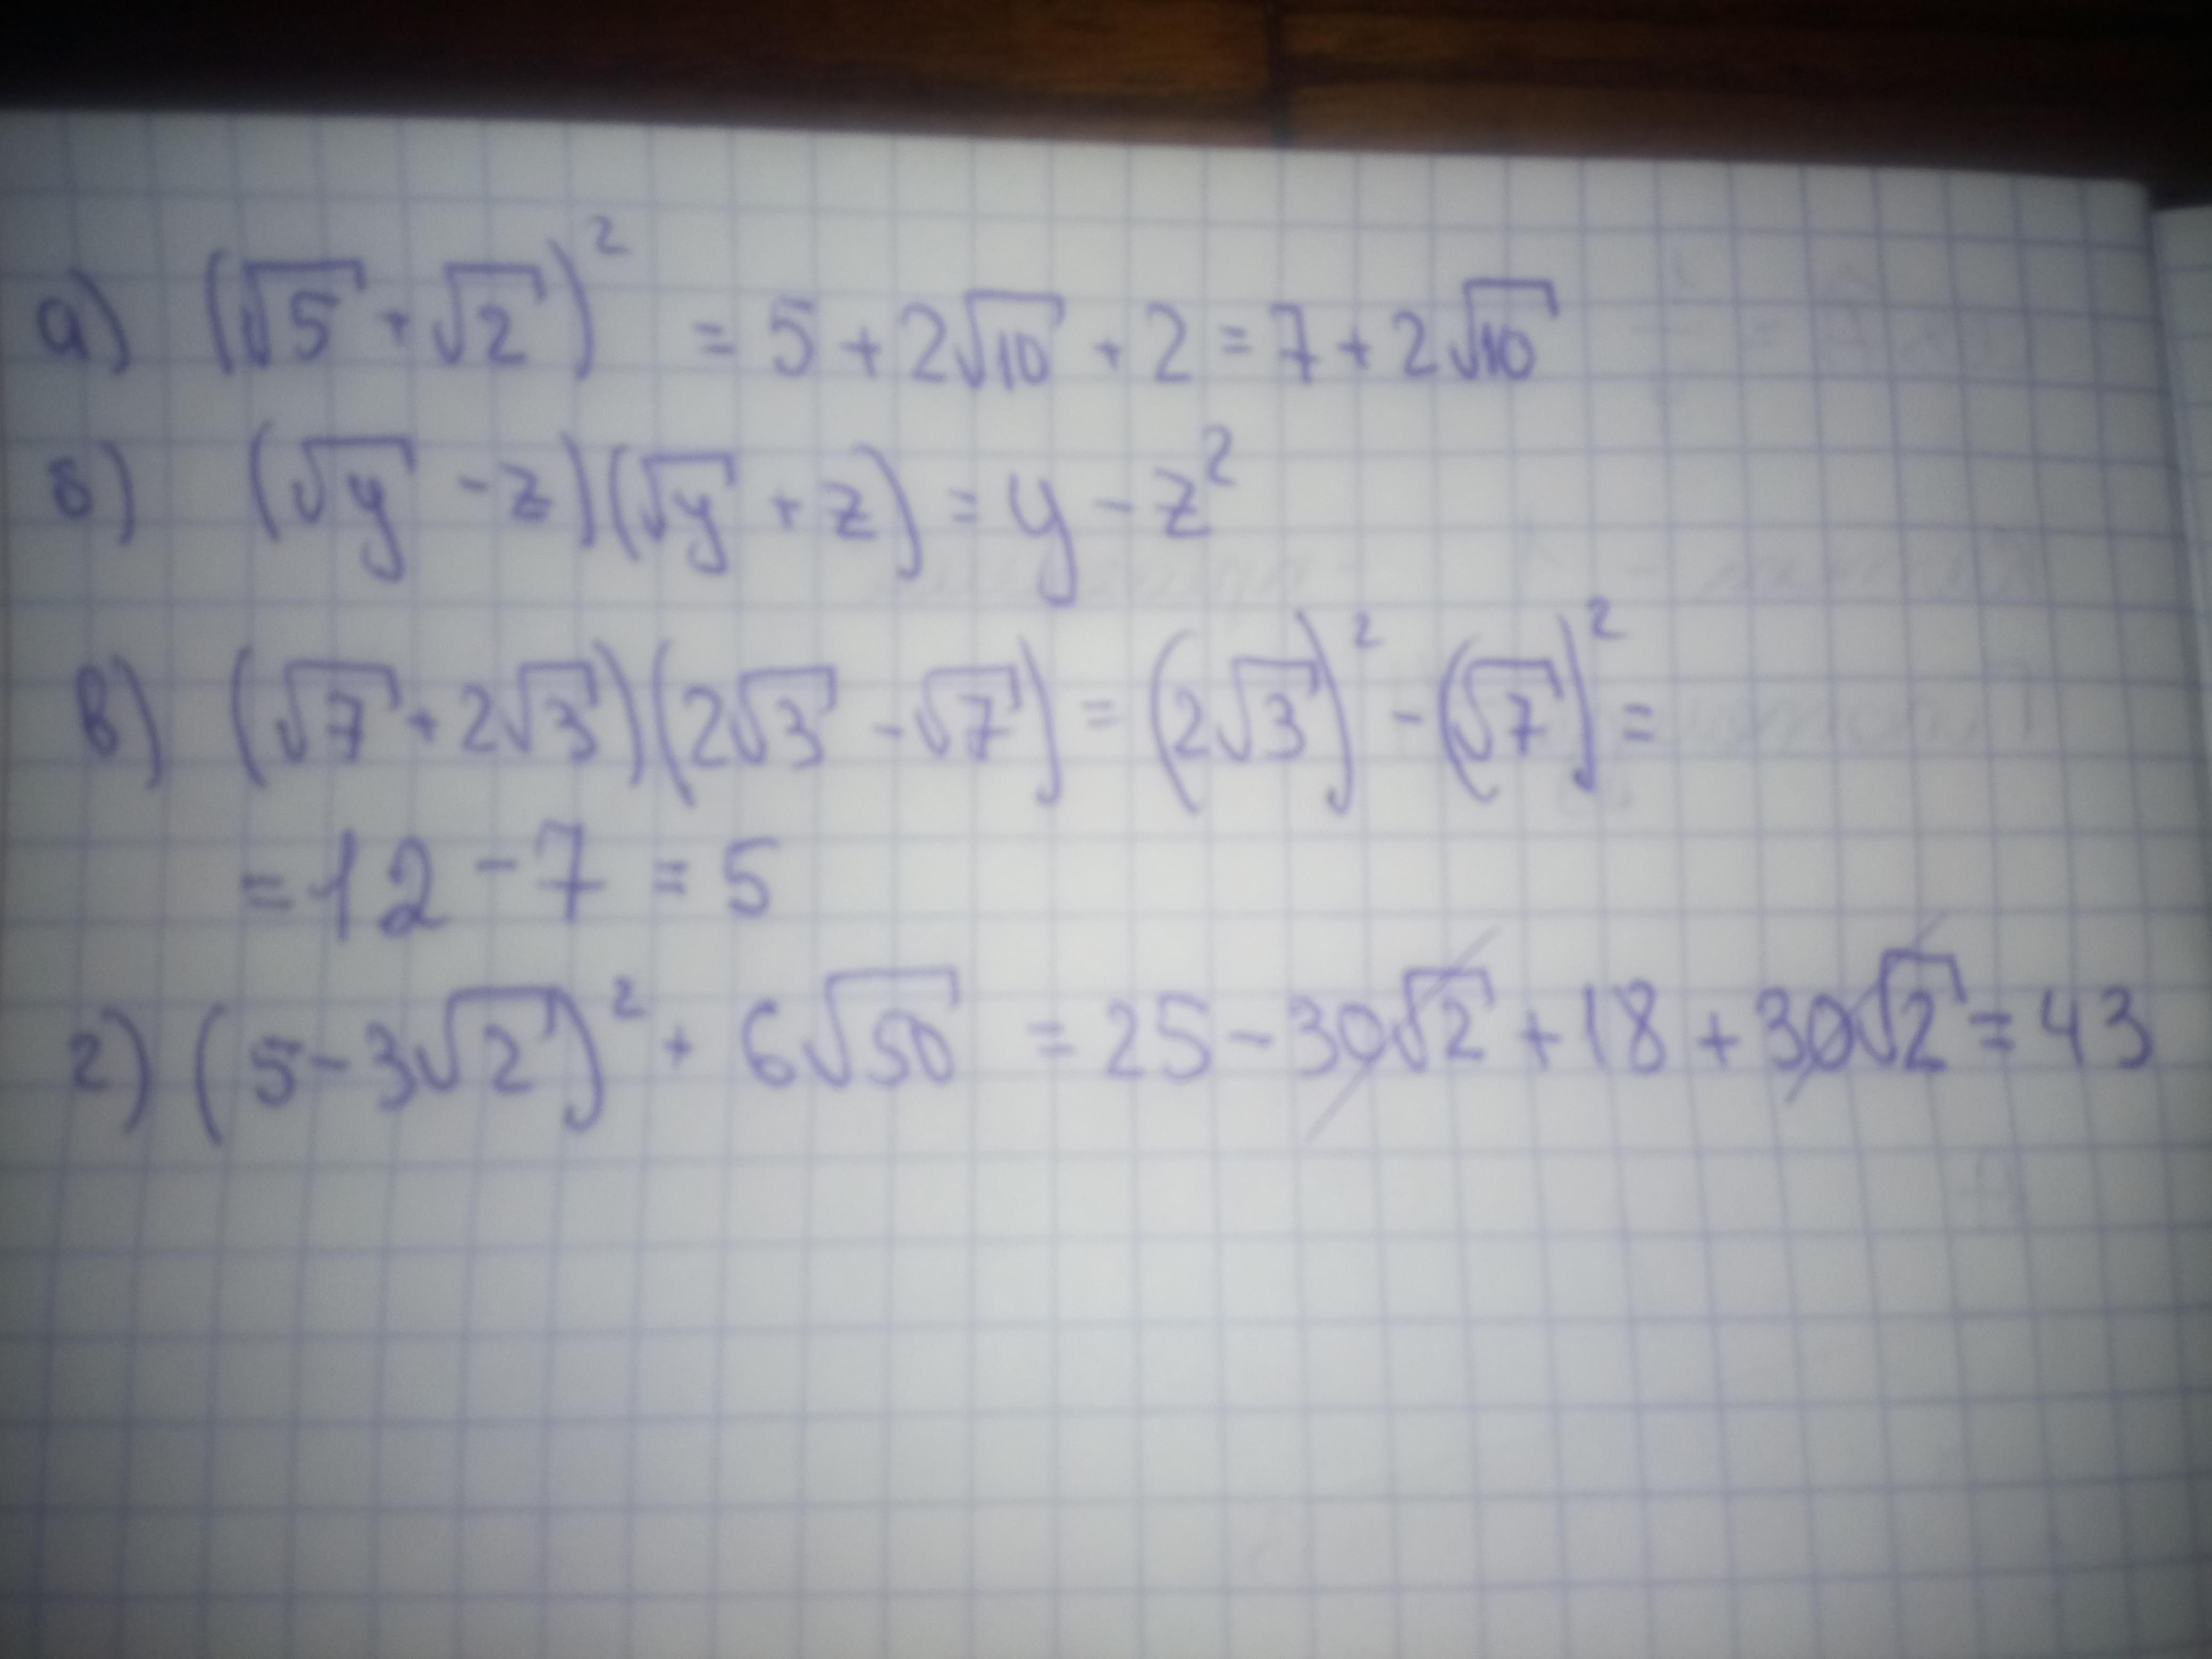 а) (√5 + √2)² = 5 + 2√10 + 2 = 7 + 2√10
б) (√y - z)(√y + z) = y - z²
в) (√7 + 2√3)(2√3 - √7) = (2√3)² - (√7)² =
= 12 - 7 = 5
г) (5 - 3√2)² + 6√50 = 25 - 30√2 + 18 + 30√2 = 43